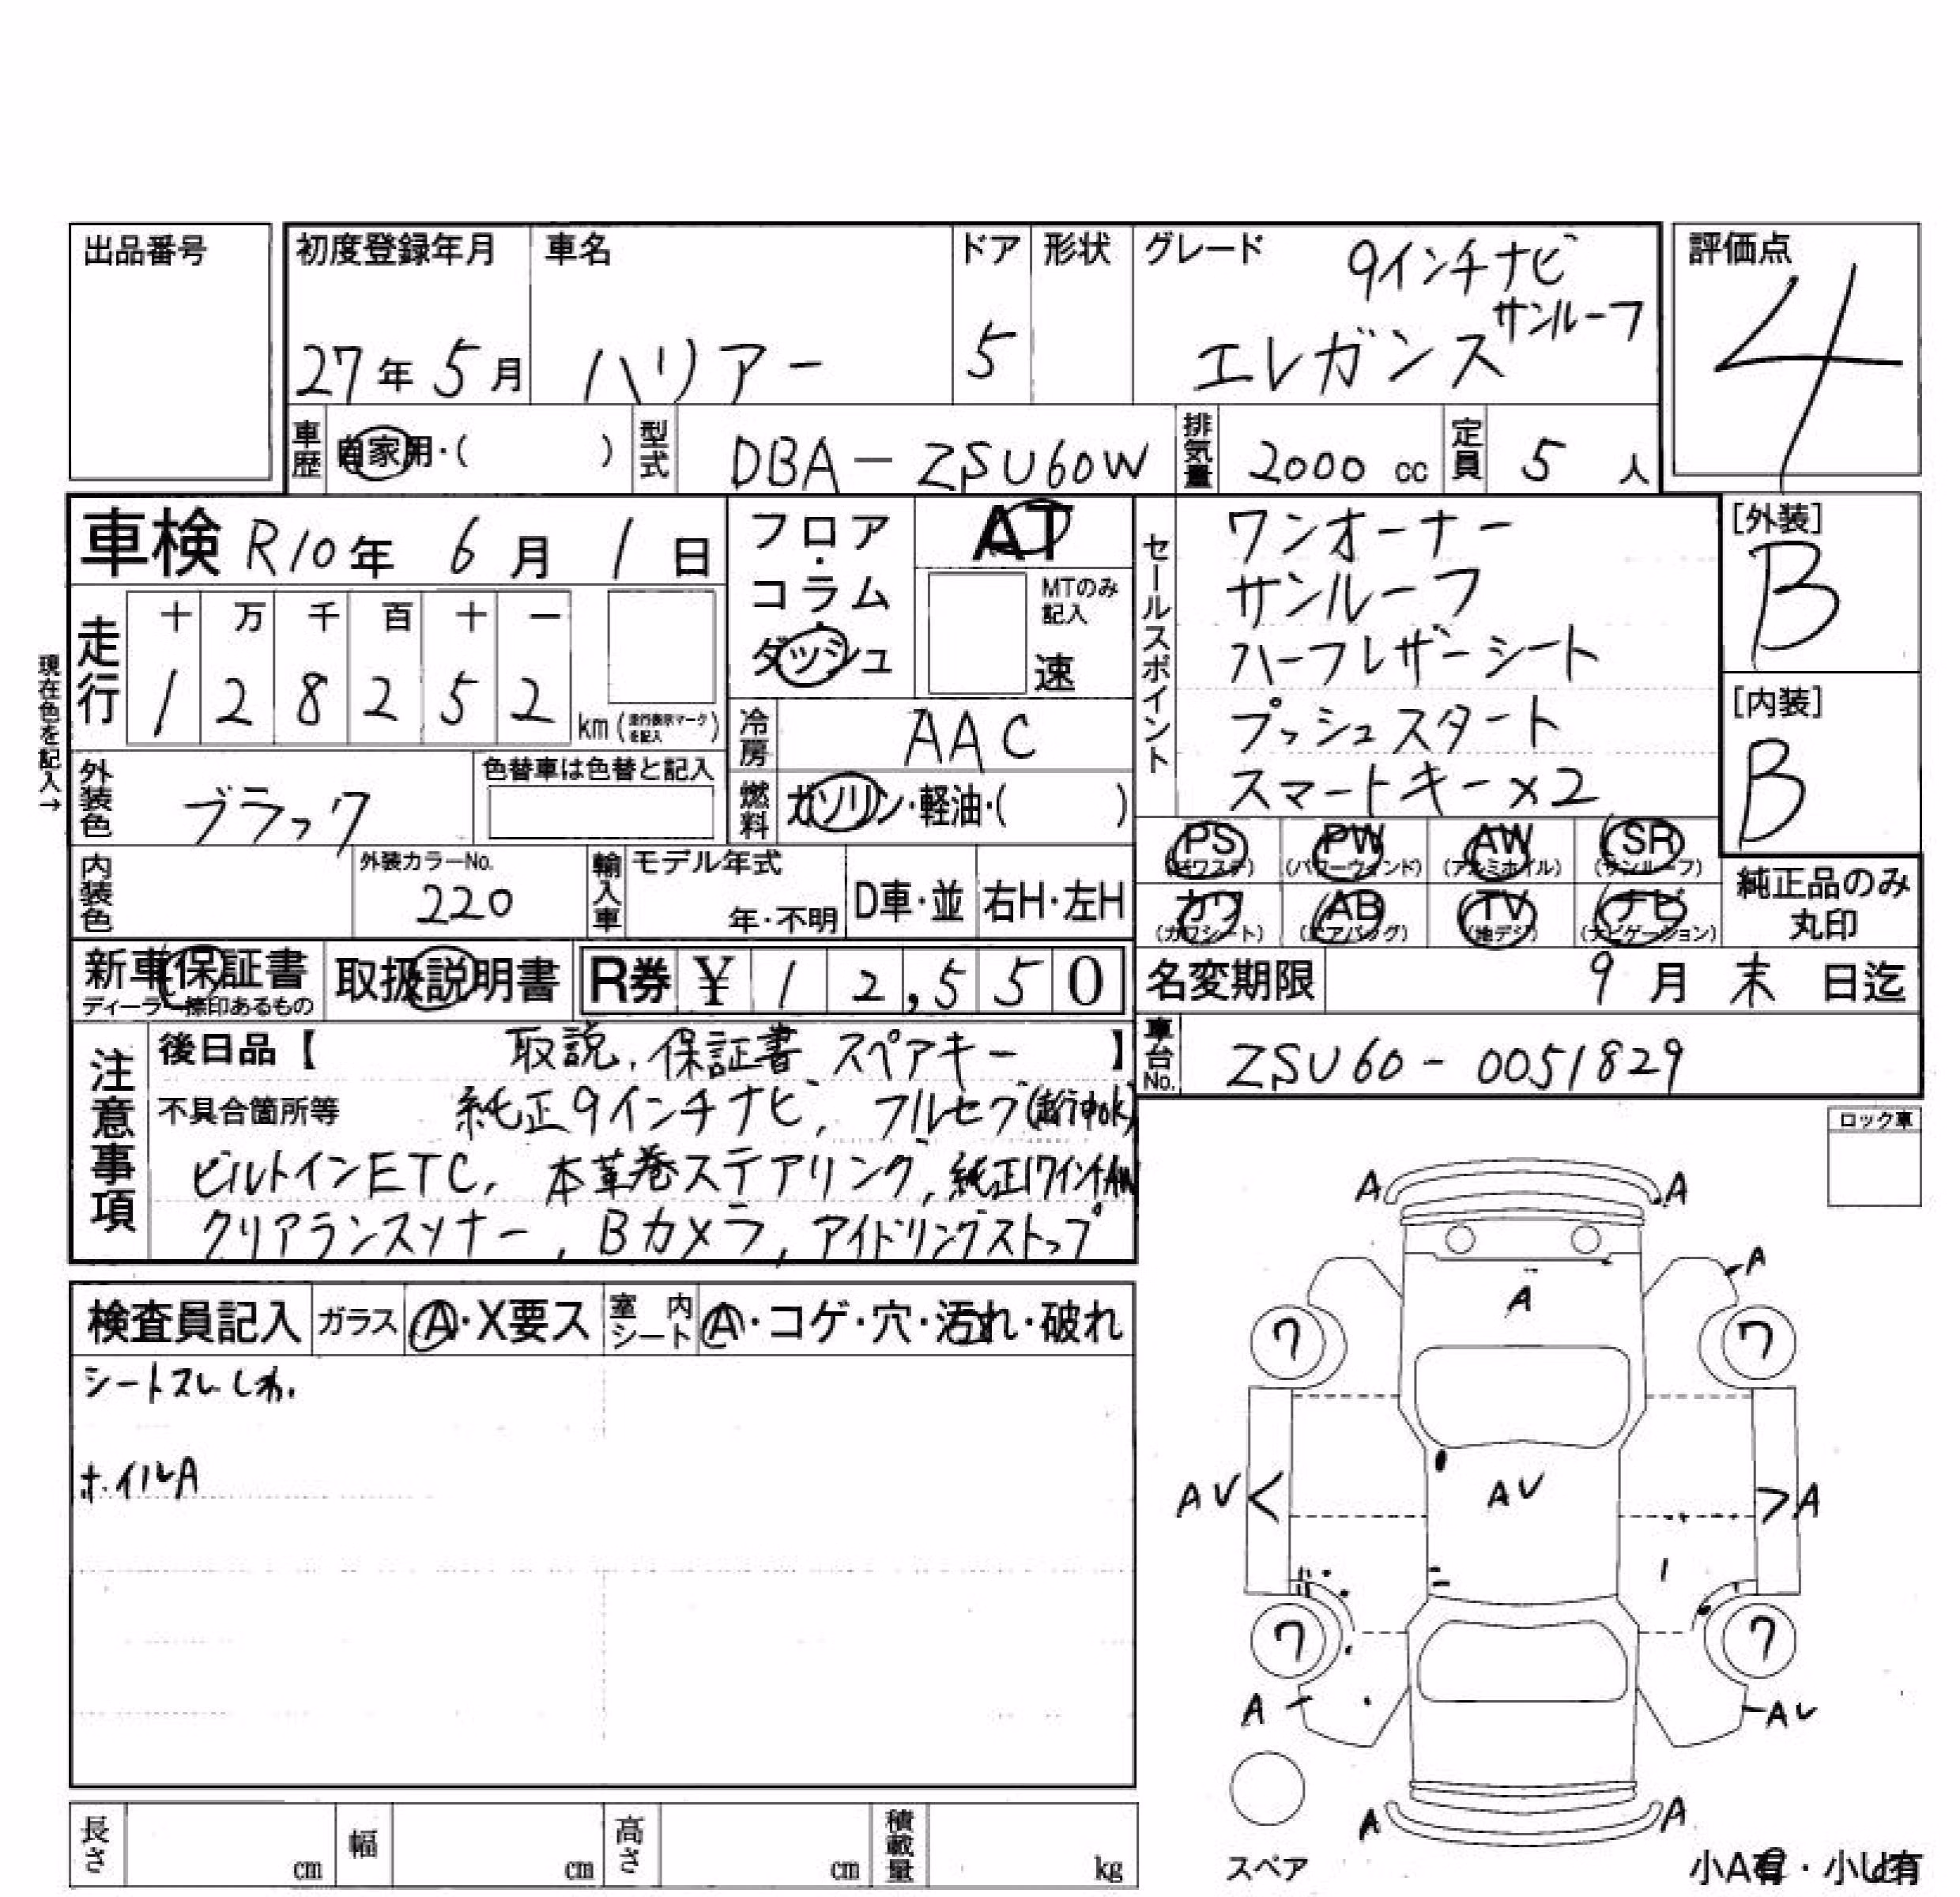 出品番号
初度登録年月
27年5月
車名
ハリアー
ドア
5
形状
グレード
9インチナビ
サンルーフ
エレガンス
評価点
4
車歴
自家用・( )
型式
DBA-ZSU60W
排気量
2000 cc
定員
5 人
車検 R10年 6月 1日
フロア・コラム・ダッシュ
AT
MTのみ記入
速
セールスポイント
ワンオーナー
サンルーフ
ハーフレザーシート
プッシュスタート
スマートキー×2
[外装]
B
[内装]
B
現在色を記入→
走行
十 万 千 百 十 一
1 2 8 2 5 2 km (走行表示マークを記入)
冷房
AAC
外装色
ブラック
色替車は色替と記入
燃料
ガソリン・軽油・( )
PS (パワステ)
PW (パワーウィンド)
AW (アルミホイル)
SR (サンルーフ)
カワ (カワシート)
AB (エアバッグ)
TV (地デジ)
ナビ (ナビゲーション)
純正品のみ丸印
内装色
外装カラーNo.
220
輸入車
モデル年式
年・不明
D車・並
右H・左H
新車保証書
ディーラー捺印あるもの
取扱説明書
R券 ¥ 12,550
名変期限 9月 末 日迄
車台No.
ZSU60-0051829
注意事項
後日品【 取説、保証書 スペアキー 】
不具合箇所等 純正9インチナビ、フルセグ(走行中ok)
ビルトインETC、本革巻ステアリング、純正17インチAW
クリアランスソナー、Bカメラ、アイドリングストップ
ロック車
検査員記入
ガラス A・X要ス
室内シート A・コゲ・穴・汚れ・破れ
シートスレ しわ.
ホイルA
A A
A
A
ワ ワ
AV AV A
ワ ワ
A AV
A A
スペア
小A有・小U有
長さ cm
幅 cm
高さ cm
積載量 kg